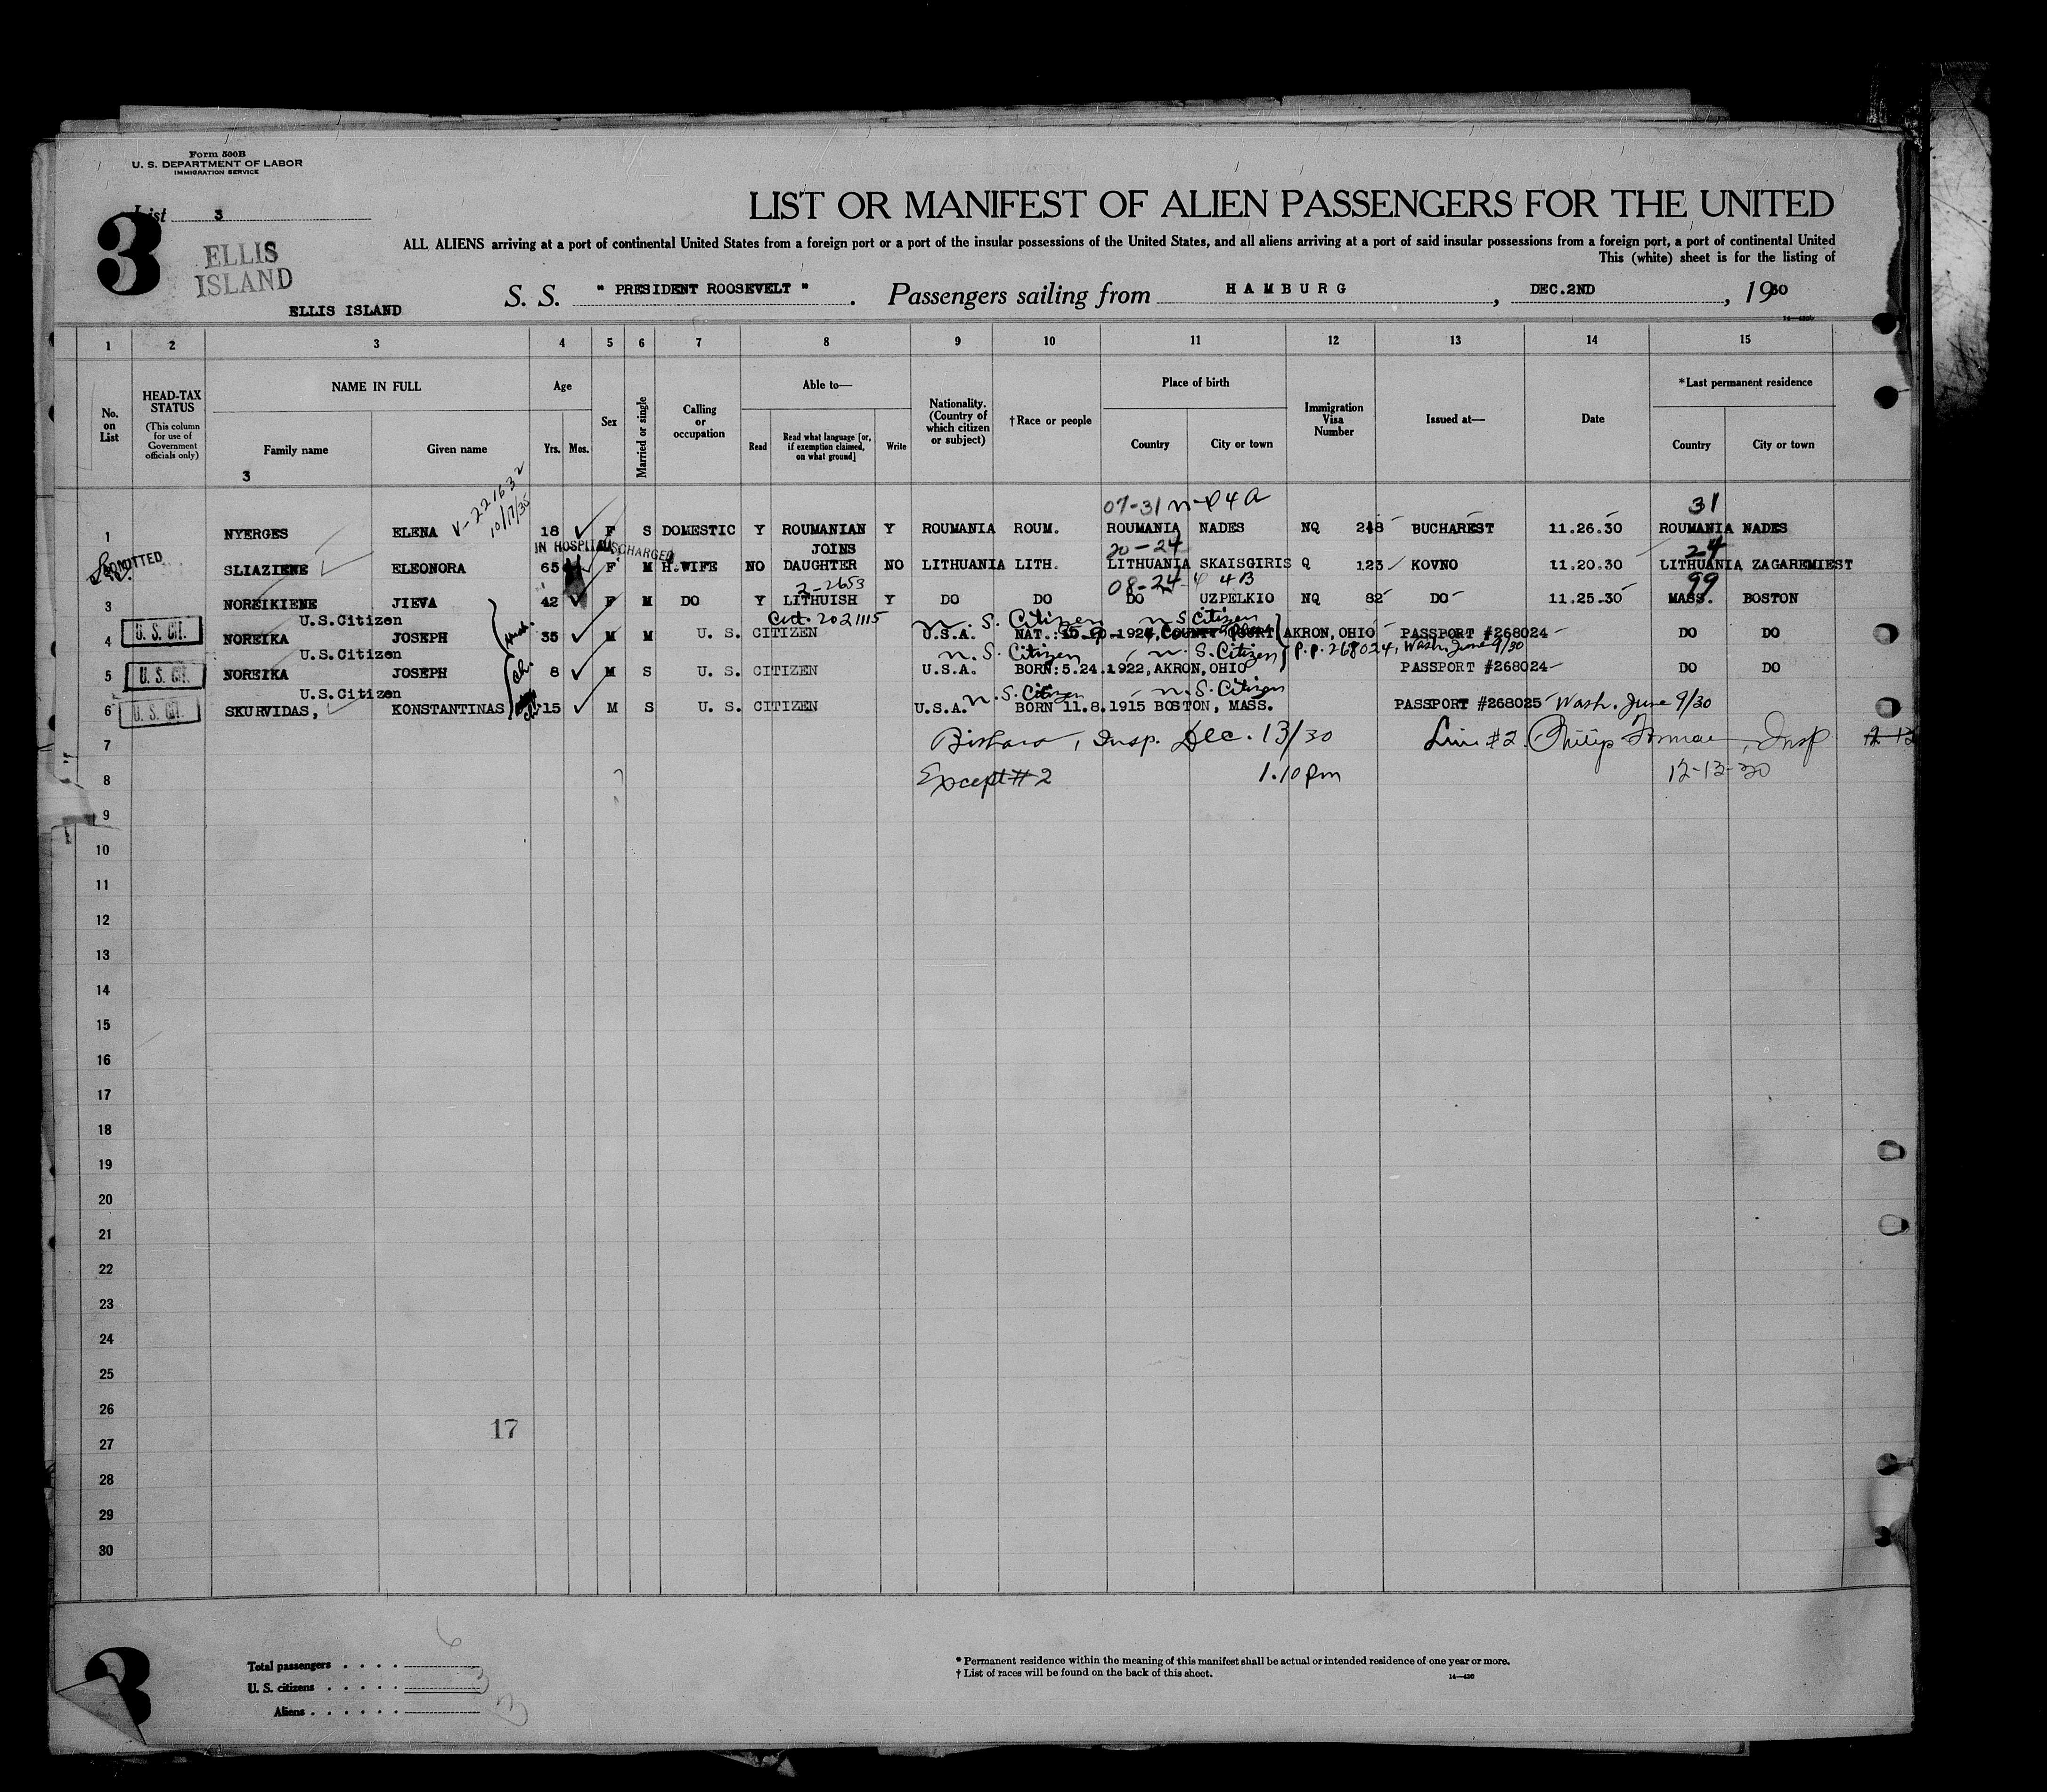 Form 500B
U. S. DEPARTMENT OF LABOR
IMMIGRATION SERVICE
List 3
3
ELLIS
ISLAND
ELLIS ISLAND
LIST OR MANIFEST OF ALIEN PASSENGERS FOR THE UNITED
ALL ALIENS arriving at a port of continental United States from a foreign port or a port of the insular possessions of the United States, and all aliens arriving at a port of said insular possessions from a foreign port, a port of continental United
This (white) sheet is for the listing of
S. S. " PRESIDENT ROOSEVELT " . Passengers sailing from HAMBURG, DEC.2ND, 1930
1 2 3 4 5 6 7 8 9 10 11 12 13 14 15
No. on List
HEAD-TAX STATUS
(This column for use of Government officials only)
NAME IN FULL
Family name Given name
3
Age
Yrs. Mos.
Sex
Married or single
Calling or occupation
Able to—
Read
Read what language [or, if exemption claimed, on what ground]
Write
Nationality. (Country of which citizen or subject)
†Race or people
Place of birth
Country City or town
Immigration Visa Number
Issued at—
Date
*Last permanent residence
Country City or town
V-221632
10/17/35
07-31 31
1 NYERGES ELENA 18 F S DOMESTIC Y ROUMANIAN Y ROUMANIA ROUM. ROUMANIA NADES NQ 248 BUCHAREST 11.26.30 ROUMANIA NADES
ADMITTED IN HOSPITAL DISCHARGED JOINS 20-24 24
SLIAZIENE ELEONORA 65 F M H.WIFE NO DAUGHTER NO LITHUANIA LITH. LITHUANIA SKAISGIRIS Q 123 KOVNO 11.20.30 LITHUANIA ZAGAREMIEST
2-2653 08-24 4B 99
3 NOREIKIENE JIEVA 42 F M DO Y LITHUISH Y DO DO DO UZPELKIO NQ 82 DO 11.25.30 MASS. BOSTON
U.S.Citizen 2021115 S. Citizen S Citizen
4 U. S. CIT. NOREIKA JOSEPH Husb. 35 M M U. S. CITIZEN U.S.A. NAT.: COUNTY COURT AKRON, OHIO PASSPORT #268024 DO DO
U.S.Citizen S. Citizen S. Citizen P.P. 268024, Wash. June 9/30
5 U. S. CIT. NOREIKA JOSEPH Ch. 8 M S U. S. CITIZEN U.S.A. BORN:5.24.1922,AKRON,OHIO PASSPORT #268024 DO DO
U.S.Citizen S. Citizen S. Citizen
6 U. S. CIT. SKURVIDAS, KONSTANTINAS 15 M S U. S. CITIZEN U.S.A. BORN 11.8.1915 BOSTON, MASS. PASSPORT #268025 Wash. June 9/30
7 Insp. Dec. 13/30 Line #2 Philip Insp
8 Except #2 1.10 pm 12-13-30
9
10
11
12
13
14
15
16
17
18
19
20
21
22
23
24
25
26
17
27
28
29
30
3
Total passengers 6
U. S. citizens 3
Aliens 3
* Permanent residence within the meaning of this manifest shall be actual or intended residence of one year or more.
† List of races will be found on the back of this sheet.